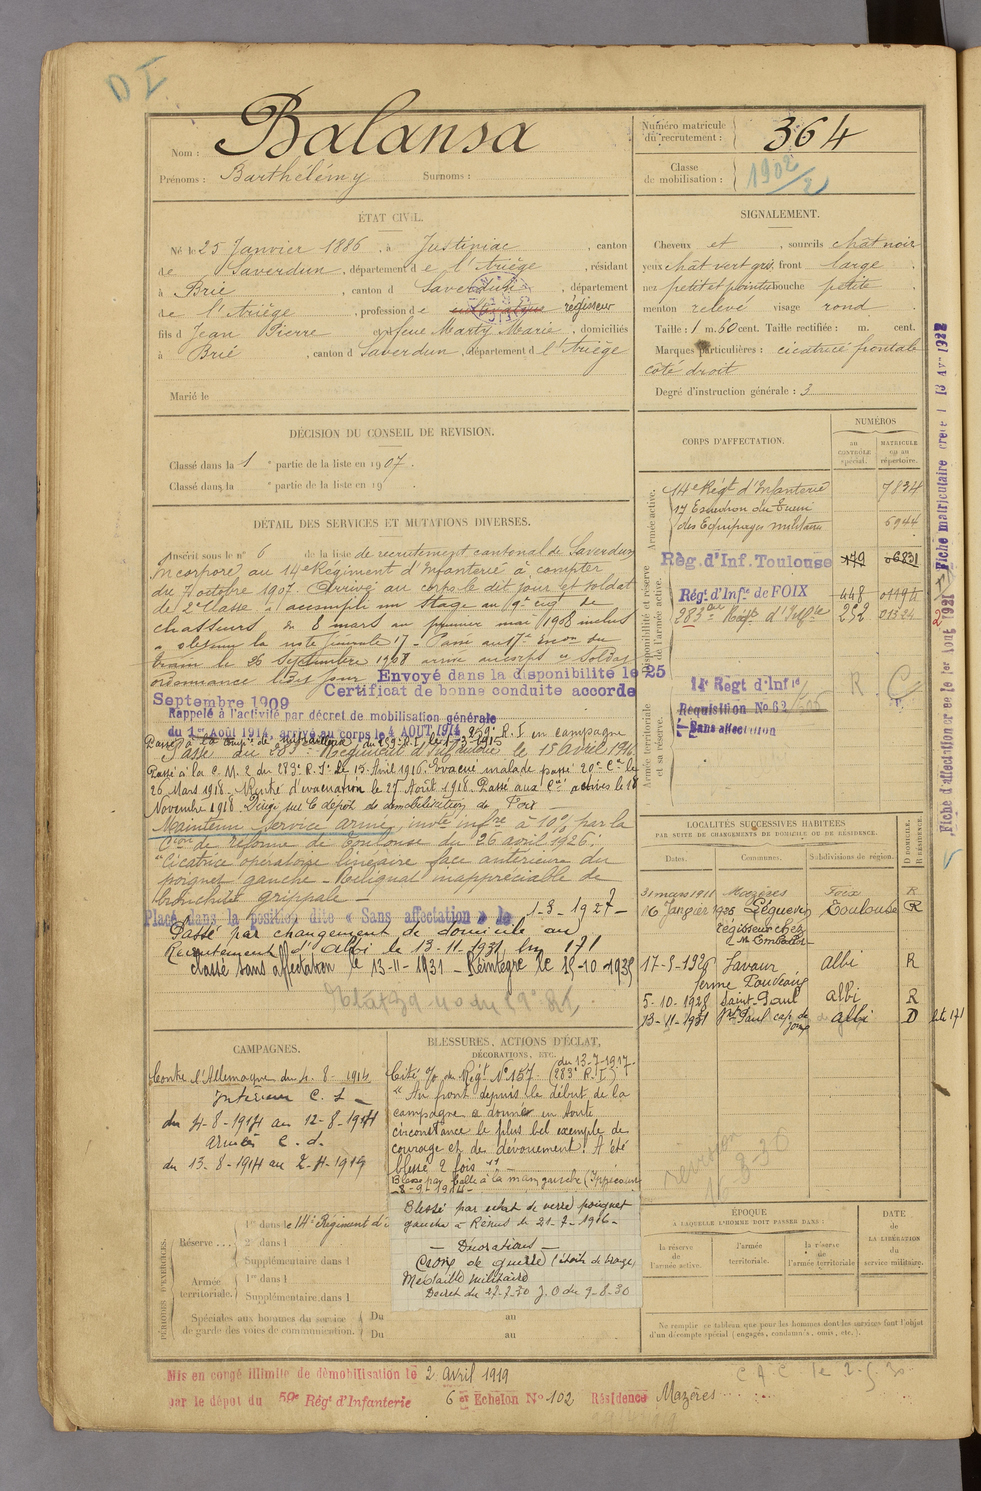 D I
Nom : Balansa
Prénoms : Barthélémy Surnoms :
Numéro matricule du recrutement : 364
Classe de mobilisation : 1902/2
ÉTAT CIVIL.
Né le 25 Janvier 1886, à Justiniac, canton
de Saverdun, département de l'Ariège, résidant
à Brié, canton d Saverdun, département
de l'Ariège, profession de régisseur
fils d Jean Pierre et feue Marty Marie, domiciliés
à Brié, canton d Saverdun, département d l'Ariège
Marié le
SIGNALEMENT.
Cheveux et, sourcils chât noir
yeux chât vert gris, front large
nez petit et pointu bouche petite
menton relevé visage rond
Taille : 1 m. 60 cent. Taille rectifiée : m. cent.
Marques particulières : cicatrice frontale
côté droit
Degré d'instruction générale : 3
DÉCISION DU CONSEIL DE REVISION.
Classé dans la 1 e partie de la liste en 1907.
Classé dans la e partie de la liste en 19 .
CORPS D'AFFECTATION.
NUMÉROS
au CONTRÔLE spécial.
MATRICULE ou au répertoire.
Armée active.
14e Régt d'Infanterie 7834
17 Escadron du Train
des Equipages militaires 5944
Disponibilité et réserve de l'armée active.
Rég. d'Inf. Toulouse 179
Régt d'Infie de FOIX 448
283e Régt d'Inf 252 01324
Armée territoriale et sa réserve.
14e Regt d'Infie R C
Requisition No 62
Sans affectation
DÉTAIL DES SERVICES ET MUTATIONS DIVERSES.
Inscrit sous le n° 6 de la liste de recrutement cantonal de Saverdun
Incorporé au 14e Régiment d'Infanterie à compter
du 7 octobre 1907. Arrivé au corps le dit jour et soldat
de 2e Classe a accompli un stage au 9e rég de
chasseurs du 8 mars au premier mai 1908 inclus
a obtenu la note 17 - Passé au 17e du
train le 26 Septembre 1908 arrivé au corps et soldat
ordonnance ledit jour Envoyé dans la disponibilité le 25
Septembre 1909 Certificat de bonne conduite accordé
Rappelé à l'activité par décret de mobilisation générale
du 1er Août 1914, arrivé au corps le 4 AOUT 1914 259e R.I en campagne
Passé au 283e Régiment d'Infanterie le 15 avril 1916
Passé à la C. M. 2 du 283e R. I. le 15 Avril 1916. Evacué malade passé 20e Cie le
26 Mars 1918. Rentré d'évacuation le 27 Août 1918. Passé aux Cies actives le 18
Novembre 1918. Dirigé sur le dépôt de démobilisation de Foix —
Maintenu service armé, invté infre à 10% par la
Cion de réforme de Toulouse du 26 avril 1926 :
"Cicatrice opératoire linéaire face antérieure du
poignet gauche - Reliquat inappréciable de
bronchite grippale —
Placé dans la position dite « Sans affectation » le 1-3-1927 —
Passé par changement de domicile au
Recrutement d'Albi le 13-11-1931, lm 171
classé sans affectation le 13-11-1931 — Réintégré le 15-10-1935
LOCALITÉS SUCCESSIVES HABITÉES
PAR SUITE DE CHANGEMENTS DE DOMICILE OU DE RÉSIDENCE.
Dates. Communes. Subdivisions de région. D DOMICILE. R RÉSIDENCE.
31 mars 1911 Mazères Foix R
16 Janvier 1926 Léguevin Toulouse R
régisseur chez
17-5-1928 Lavaur Albi R
ferme
5-10-1928 Saint-Paul Albi R
13-11-1931 St Paul cap de Joux Albi D lite 171
CAMPAGNES.
Contre l'Allemagne du 4-8-1914
Intérieur C. S —
du 4-8-1914 au 12-8-1914
Armées C. d.
du 13-8-1914 au 2-4-1919
BLESSURES, ACTIONS D'ÉCLAT,
DÉCORATIONS, ETC.
du 13-7-1917
Cité à l'o du Régt No 157. (283e R.I.)
"Au front depuis le début de la
campagne a donné en toute
circonstance le plus bel exemple de
courage et de dévouement. A été
blessé 2 fois"
Blessé par balle à la main gauche (Ippécourt)
-8-9-1914-
Blessé par éclat de verre poignet
gauche à Reims le 21-7-1916 -
— Décorations —
Croix de guerre (étoile de bronze)
Médaille militaire
Décret du 27-7-30 J.O du 9-8-30
révision
16-3-36
PÉRIODES D'EXERCICES.
Réserve ...
1re dans le 14e Régiment d'i
2e dans l
Supplémentaire dans l
Armée territoriale.
1re dans l
Supplémentaire dans l
Spéciales aux hommes du service de garde des voies de communication.
Du au
Du au
ÉPOQUE
A LAQUELLE L'HOMME DOIT PASSER DANS :
la réserve de l'armée active.
l'armée territoriale
la réserve de l'armée territoriale
DATE de LA LIBÉRATION du service militaire.
Ne remplir ce tableau que pour les hommes dont les services font l'objet
d'un décompte spécial (engagés, condamnés, omis, etc.).
Mis en congé illimité de démobilisation le 2 avril 1919
par le dépôt du 59e Régt d'Infanterie 6e Echelon No 102 Résidence Mazères
C A C le 2-5-30
Fiche d'affectation créée le 1er Aout 1921
Fiche matriculaire créée le 13 Avr 1922